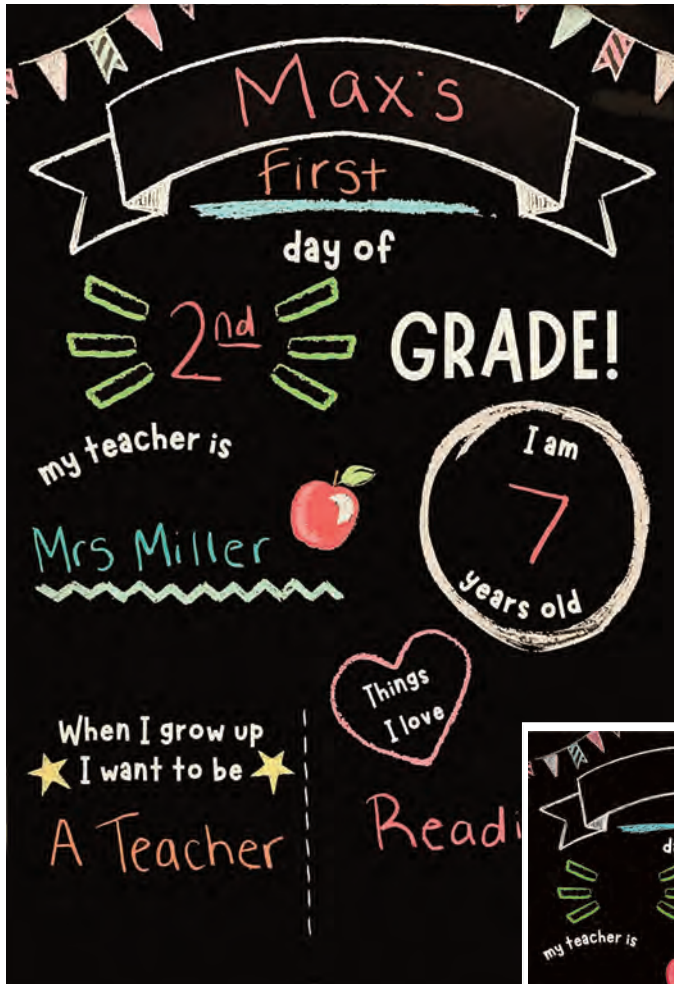 Max's
First
day of
2nd GRADE!
my teacher is
Mrs Miller
I am
7
years old
Things
I love
When I grow up
I want to be
A Teacher
Readi
my teacher is